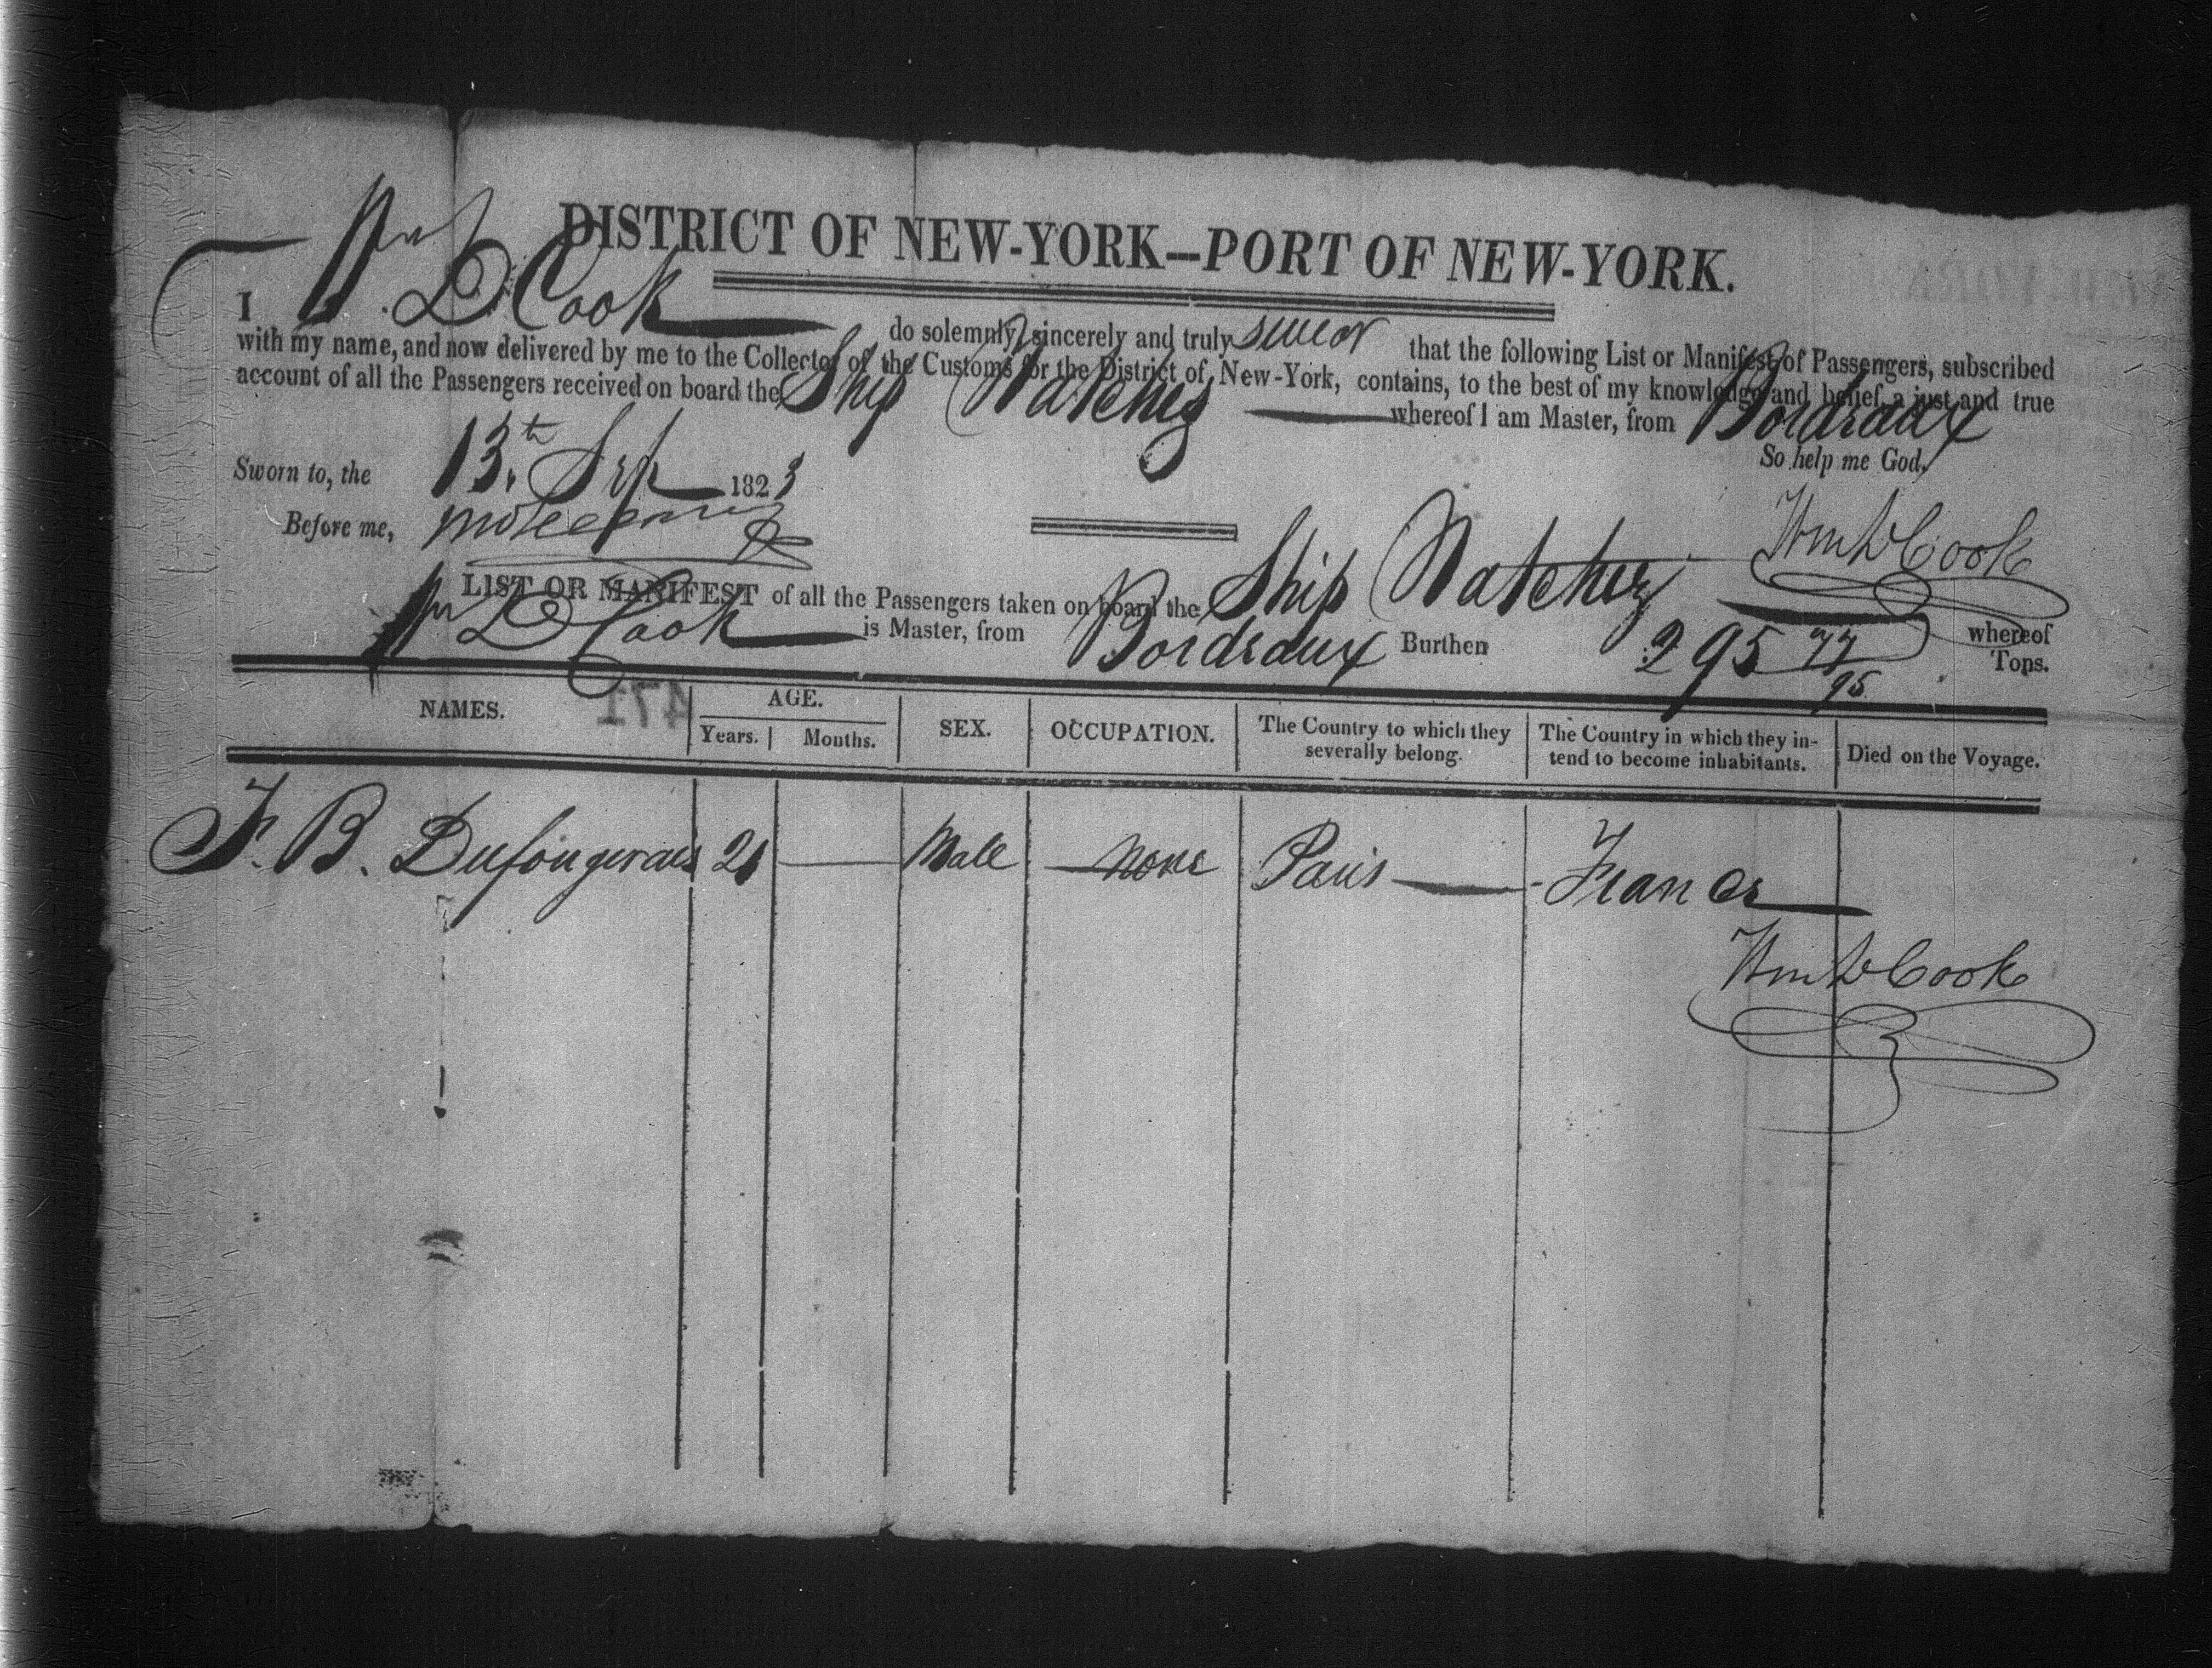 DISTRICT OF NEW-YORK—PORT OF NEW-YORK.
I Wm D Cook do solemnly, sincerely and truly swear that the following List or Manifest of Passengers, subscribed
with my name, and now delivered by me to the Collector of the Customs for the District of New-York, contains, to the best of my knowledge and belief, a just and true
account of all the Passengers received on board the Ship Natchez whereof I am Master, from Bordeaux
So help me God,
Sworn to, the 13th Sep 1823
Before me,
Wm D Cook
LIST OR MANIFEST of all the Passengers taken on board the Ship Natchez whereof
Wm D Cook is Master, from Bordeaux Burthen 295 77/95 Tons.
471
NAMES. AGE. SEX. OCCUPATION. The Country to which they severally belong. The Country in which they intend to become inhabitants. Died on the Voyage.
Years. Months.
F. B. Dufougerais 21 — Male — None Paris — France
Wm D Cook